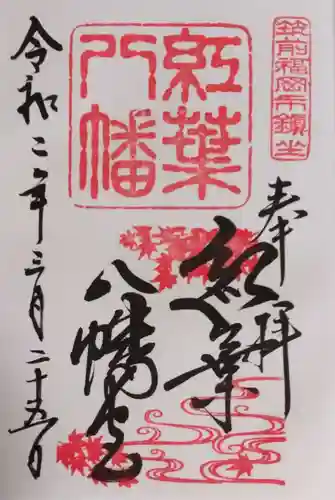 筑前福岡市鎮坐
奉拝
紅葉八幡
紅葉
八幡宮
令和二年三月二十五日